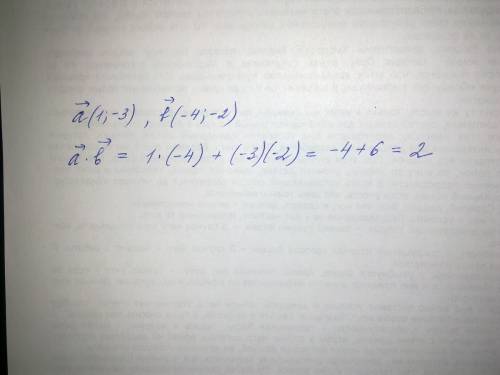 a⃗(1;-3) , b⃗(-4;-2)
a⃗·b⃗ = 1·(-4) + (-3)(-2) = -4+6 = 2